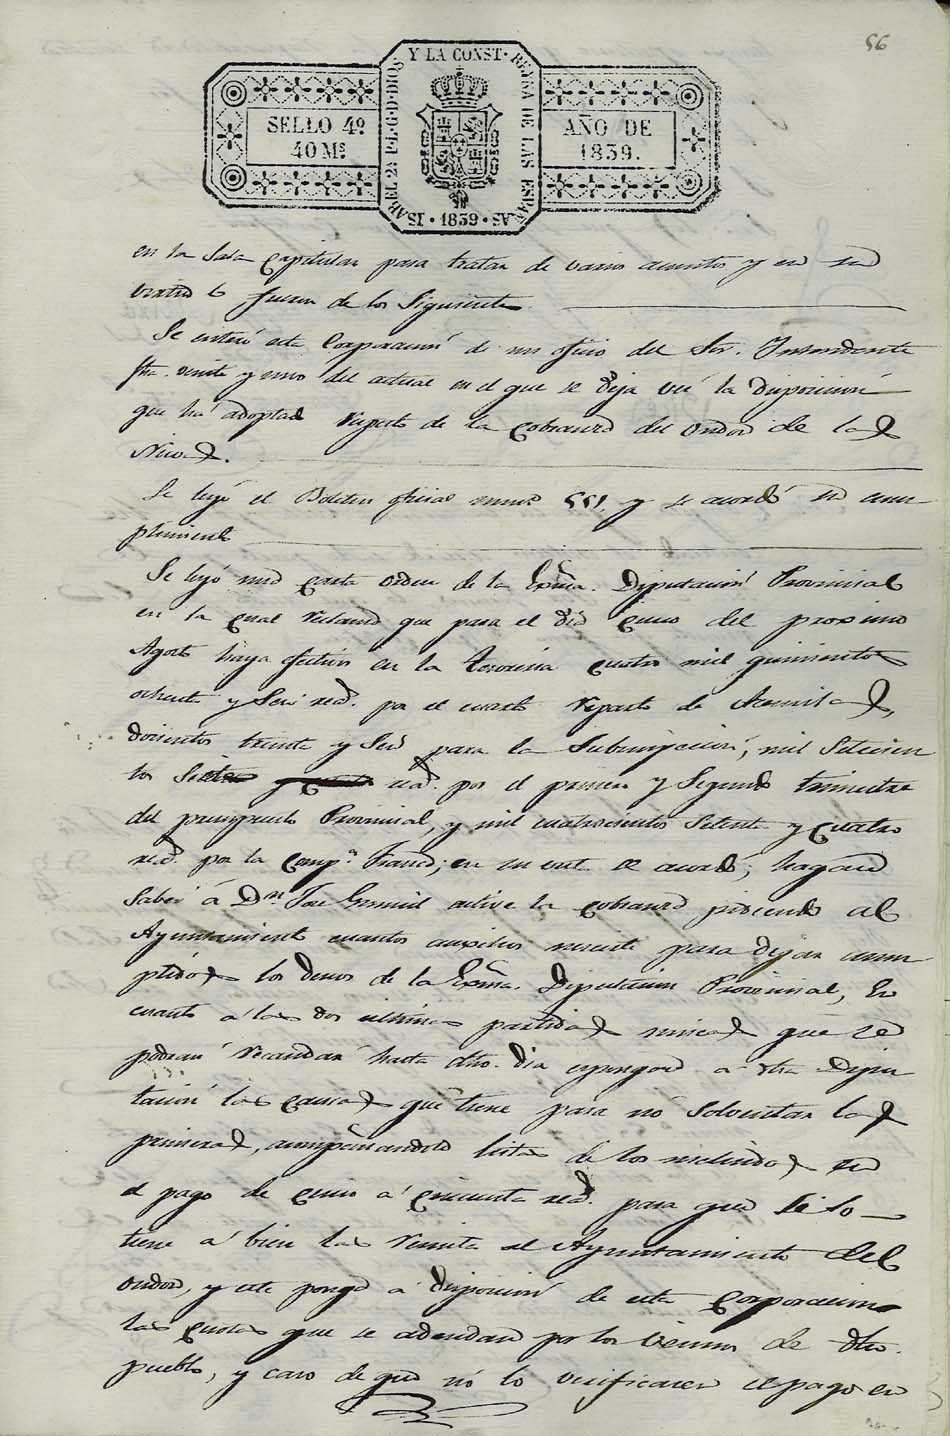 56
ISABEL 2ª P.L.G.D.DIOS Y LA CONST. REINA DE LAS ESPAÑAS · 1839 ·
SELLO 4º
40 Ms
AÑO DE
1839.
en la Sala Capitular para tratar de varios asuntos y en su
virtud lo fueron de los Siguientes
Se enteró esta Corporación de un oficio del Sor. Intendente
fha. veinte y uno del actual en el que se deja ver la disposicion
que ha adoptado respecto de la cobranza del Ondon de las
Nieves.
Se leyó el Boletin oficial numº 551, y se acordó su cum
plimiento
Se leyó una carta orden de la Exma. Diputación Provincial
en la cual reclama que para el dia cinco del proximo
Agosto haya efectivos en la tesoreria cuatro mil quinientos
ochenta y Seis reas. por el cuarto reparto de
doscientos treinta y Seis para la Subinspeccion, mil Setecien
tos reas. por el primer y Segundo trimestre
del presupuesto Provincial, y mil cuatrocientos Setenta y Cuatro
reas. por la Compª franca; en su vista se acordó, hagase
saber á Dn. José active la cobranza pidiendo al
Ayuntamiento cuantos auxilios necesite para dejar cum
plidos los deseos de la Exma. Diputacion Provincial, En
cuanto a las dos ultimas partidas unicas que se
podran recaudar hasta dho. dia espongase a dha Dipu
tación las causas que tiene para no solventar las
primeras, acompañandole lista de los incluidos en
el pago de cinco a cincuenta reas. para que si lo
tiene á bien las remita al Ayuntamiento del
ondon, y este ponga a disposición de esta Corporacion
las cuotas que se adeudan por los vecinos de dho.
pueblo, y caso de que no lo verificaren el pago en